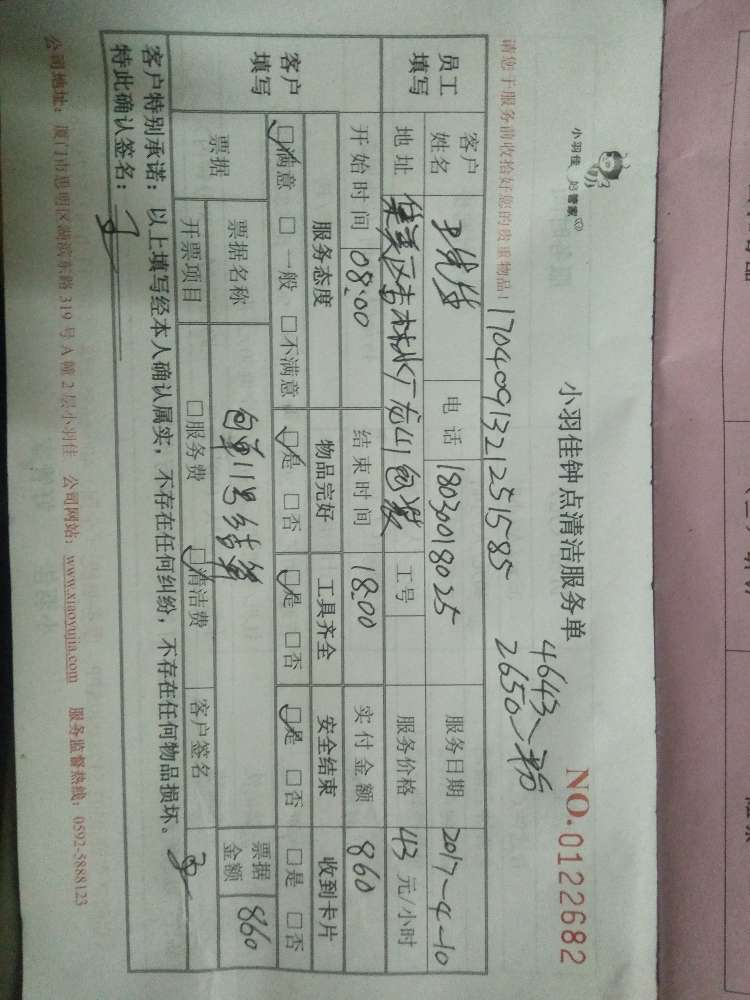 小羽佳 妈管家
小羽佳钟点清洁服务单
NO.0122682
请您于服务前收拾好您的贵重物品！
1704091321251585
4643
2650
员工填写
客户姓名 电话 18030018025 服务日期 2017-4-10
地址 集美区 龙山包装 工号 服务价格 43 元/小时
开始时间 08:00 结束时间 18:00 实付金额 860
客户填写
服务态度 物品完好 工具齐全 安全结束 收到卡片
☑满意 □一般 □不满意 ☑是 □否 ☑是 □否 ☑是 □否 □是 □否
票据 票据名称 包年11号结算 票据金额 860
开票项目 □服务费 ☑清洁费 客户签名
客户特别承诺：以上填写经本人确认属实，不存在任何纠纷，不存在任何物品损坏。
特此确认签名：
公司地址：厦门市思明区湖滨东路319号A幢2层小羽佳 公司网站：www.xiaoyujia.com 服务监督热线：0592-5888123